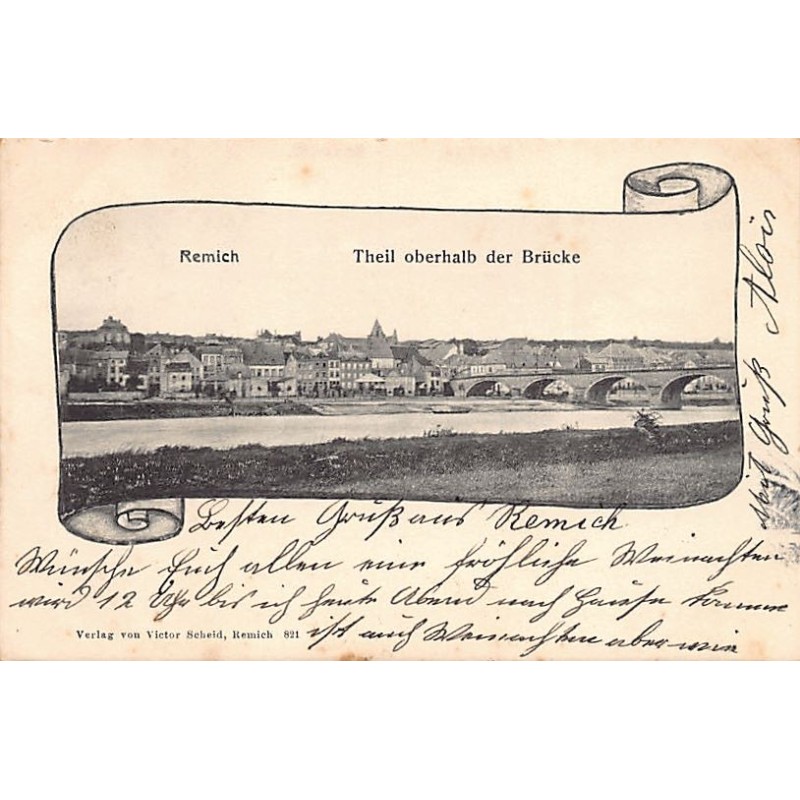 Remich
Theil oberhalb der Brücke
Besten Gruß aus Remich.
Wünsche Euch allen eine fröhliche Weinachten
wird 12 Uhr bis ich heute Abend nach Hause komme
ist auch Weinachten aber wie
Mit Gruß Alois
Verlag von Victor Scheid, Remich 821